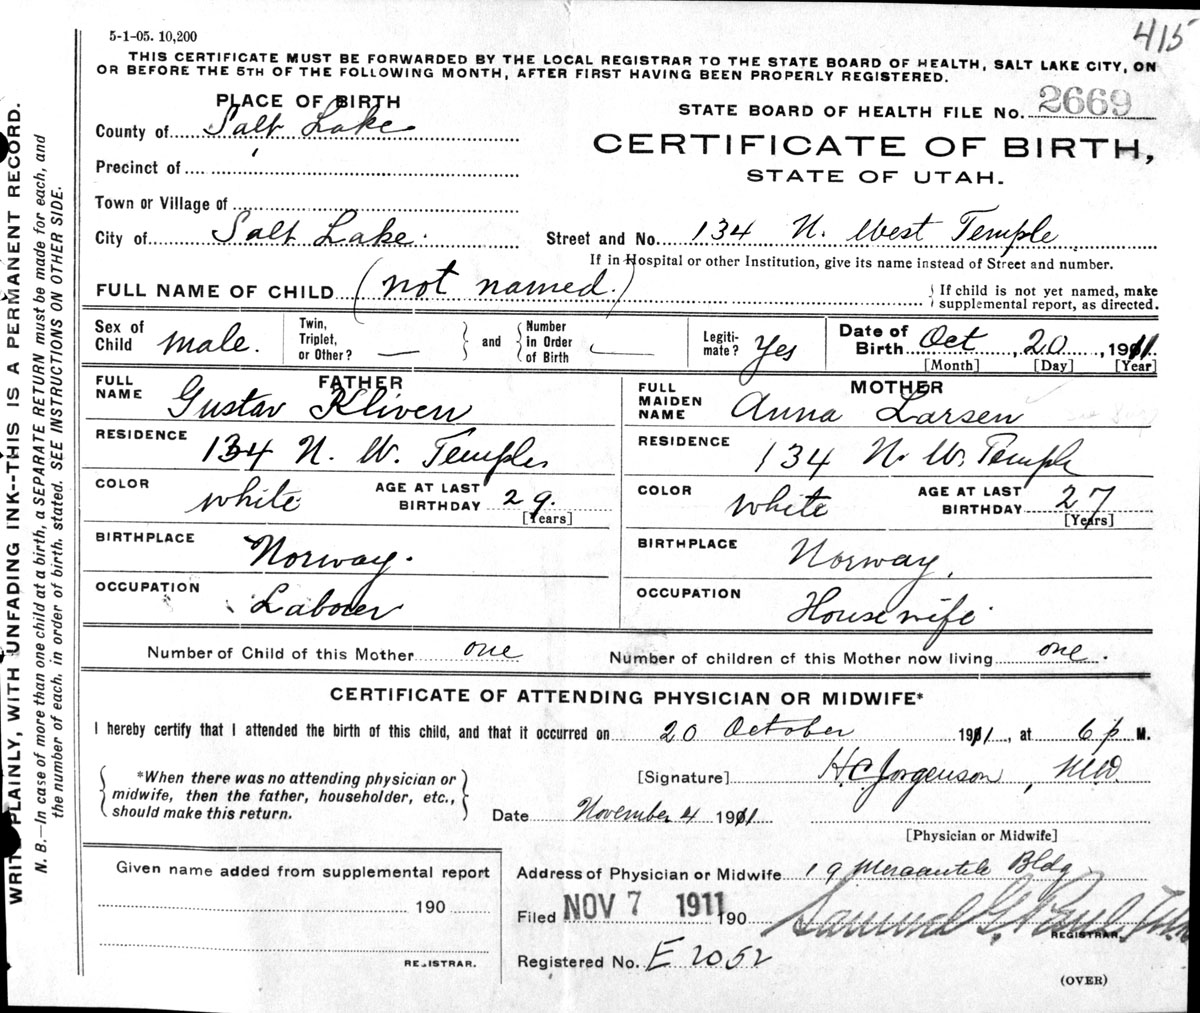 415
5-1-05. 10,200
THIS CERTIFICATE MUST BE FORWARDED BY THE LOCAL REGISTRAR TO THE STATE BOARD OF HEALTH, SALT LAKE CITY, ON
OR BEFORE THE 5TH OF THE FOLLOWING MONTH, AFTER FIRST HAVING BEEN PROPERLY REGISTERED.
WRITE PLAINLY, WITH UNFADING INK--THIS IS A PERMANENT RECORD.
N. B.—In case of more than one child at a birth, a SEPARATE RETURN must be made for each, and
the number of each, in order of birth, stated. SEE INSTRUCTIONS ON OTHER SIDE.
PLACE OF BIRTH
County of Salt Lake
Precinct of
Town or Village of
City of Salt Lake.
STATE BOARD OF HEALTH FILE No. 2669
CERTIFICATE OF BIRTH,
STATE OF UTAH.
Street and No. 134 N. West Temple
If in Hospital or other Institution, give its name instead of Street and number.
FULL NAME OF CHILD (not named.)
If child is not yet named, make
supplemental report, as directed.
Sex of Child male.
Twin, Triplet, or Other? —
and
Number in Order of Birth —
Legiti-mate? Yes
Date of Birth Oct, 20, 1911.
[Month] [Day] [Year]
FATHER
FULL NAME Gustav Kliven
RESIDENCE 134 N. W. Temple
COLOR white
AGE AT LAST BIRTHDAY 29.
[Years]
BIRTHPLACE Norway.
OCCUPATION Laborer
MOTHER
FULL MAIDEN NAME Anna Larsen
RESIDENCE 134 N. W. Temple
COLOR white
AGE AT LAST BIRTHDAY 27
[Years]
BIRTHPLACE Norway.
OCCUPATION Housewife
Number of Child of this Mother one
Number of children of this Mother now living one.
CERTIFICATE OF ATTENDING PHYSICIAN OR MIDWIFE*
I hereby certify that I attended the birth of this child, and that it occurred on 20 October 1911, at 6 p M.
*When there was no attending physician or
midwife, then the father, householder, etc.,
should make this return.
[Signature] H C Jorgenson, M.D.
Date November 4 1911
[Physician or Midwife]
Given name added from supplemental report
190
REGISTRAR.
Address of Physician or Midwife 19 Mercantile Bldg
Filed NOV 7 1911 190
Samuel G. Paul
REGISTRAR.
Registered No. E 2052
(OVER)